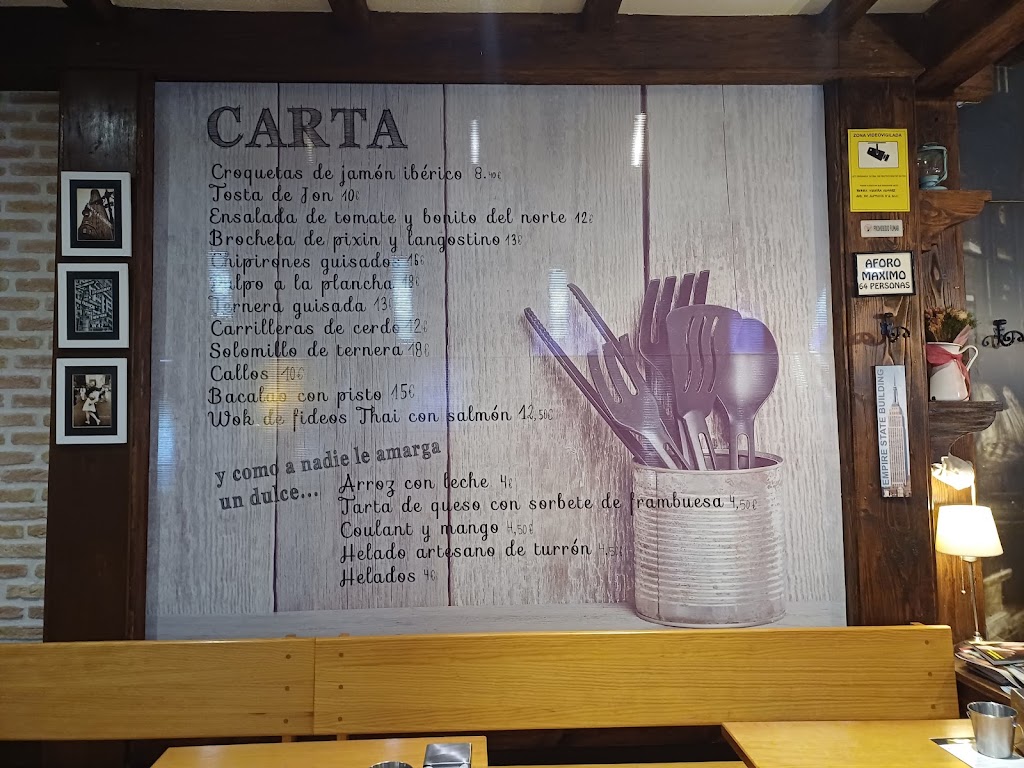 CARTA
Croquetas de jamón ibérico 8.40€
Tosta de Jon 10€
Ensalada de tomate y bonito del norte 12€
Brocheta de pixin y langostino 13€
Chipirones guisados 16€
Pulpo a la plancha 18€
Ternera guisada 13€
Carrilleras de cerdo 12€
Solomillo de ternera 18€
Callos 10€
Bacalao con pisto 15€
Wok de fideos Thai con salmón 12,50€
y como a nadie le amarga
un dulce...
Arroz con leche 4€
Tarta de queso con sorbete de frambuesa 4,50€
Coulant y mango 4,50€
Helado artesano de turrón 4,50€
Helados 4€
ZONA VIDEOVIGILADA
PROHIBIDO FUMAR
AFORO
MAXIMO
64 PERSONAS
EMPIRE STATE BUILDING